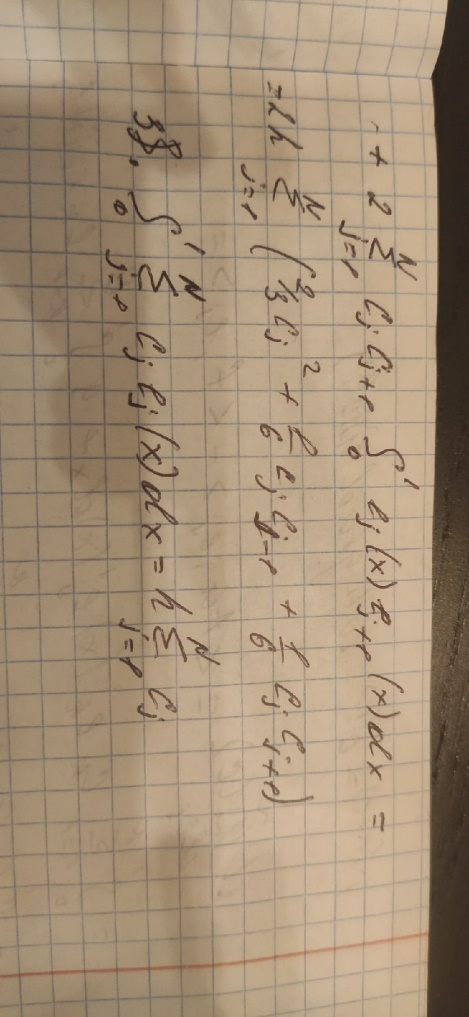 + 2 \sum_{j=1}^{N} C_j C_{j+1} \int_0^1 e_j(x) e_{j+1}(x) dx =
= 2h \sum_{j=1}^{N} ( \frac{2}{3} C_j^2 + \frac{1}{6} C_j C_{j-1} + \frac{1}{6} C_j C_{j+1} )
38. \int_0^1 \sum_{j=1}^{N} C_j e_j(x) dx = h \sum_{j=1}^{N} C_j